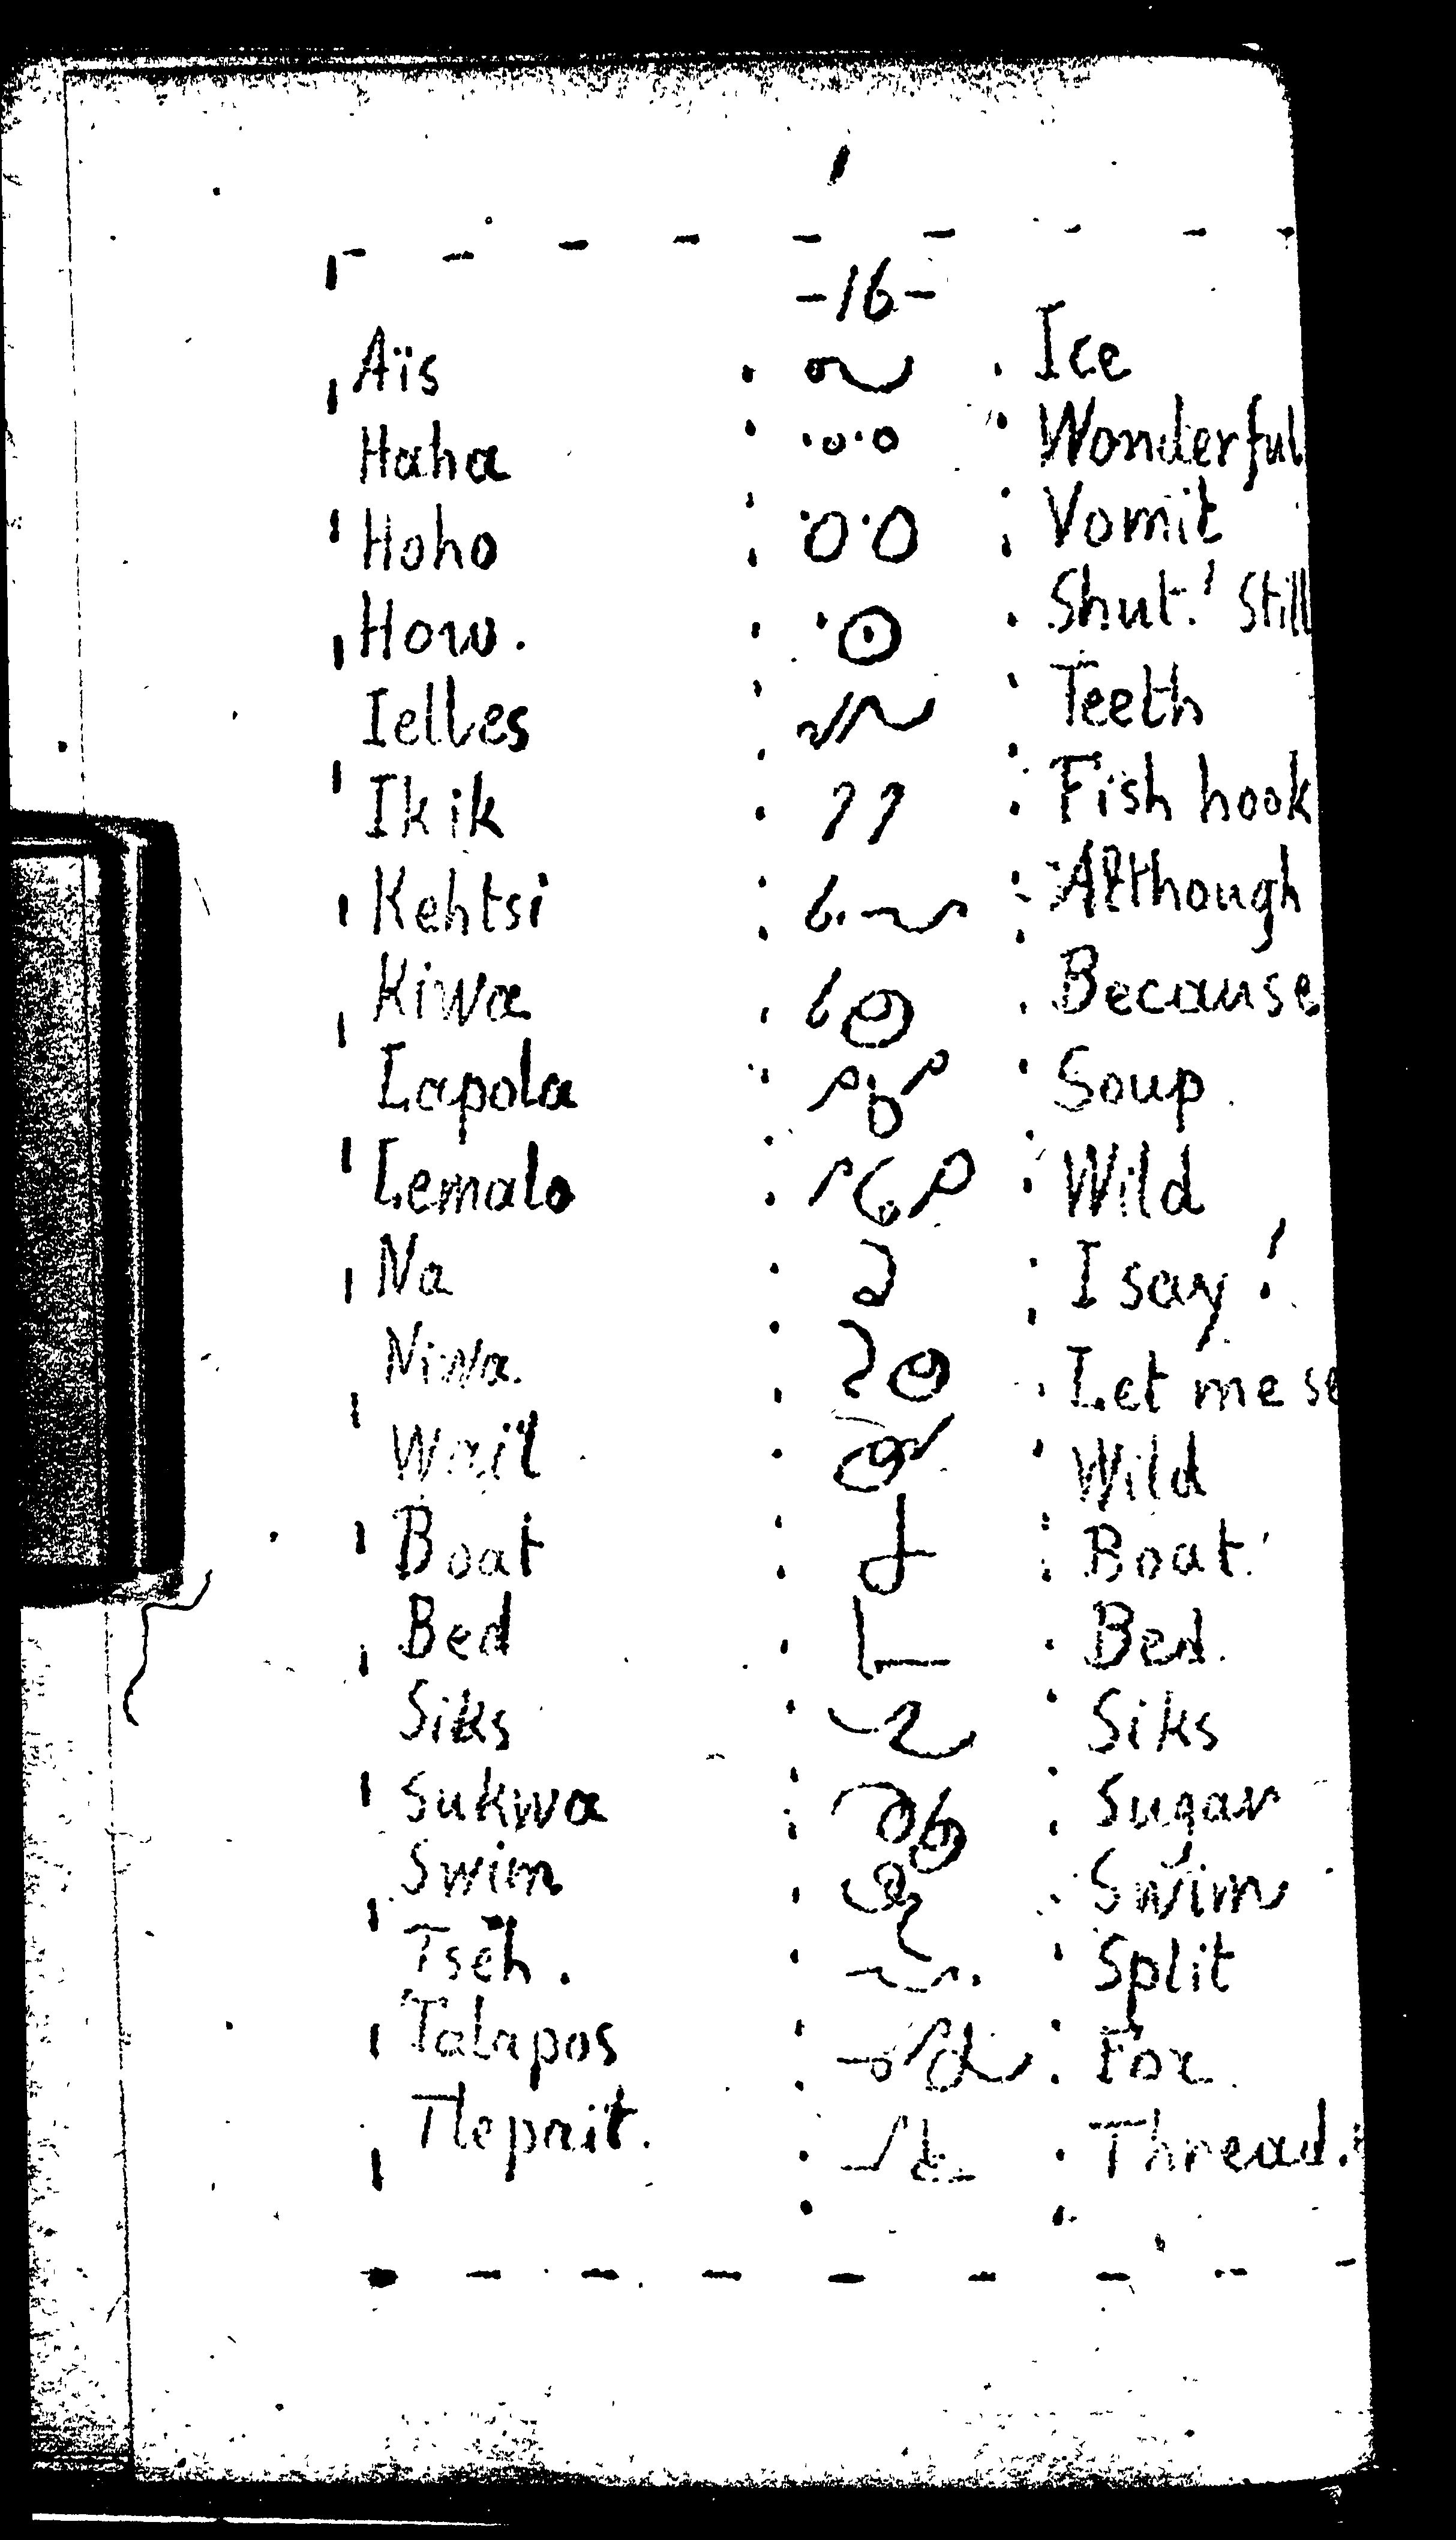 -16-
Aïs Ice
Haha Wonderful
Hoho Vomit
How. Shut! Still
Ielles Teeth
Ikik Fish hook
Kehtsi Although
Kiwa Because
Lapola Soup.
Lemalo Wild
Na I say!
Niwa. Let me se
Wail Wild
Boat Boat.
Bed Bed.
Siks Siks
Sukwa Sugar
Swim Swim
Tseh. Split
Talapos Fox.
Tlepait. Thread.